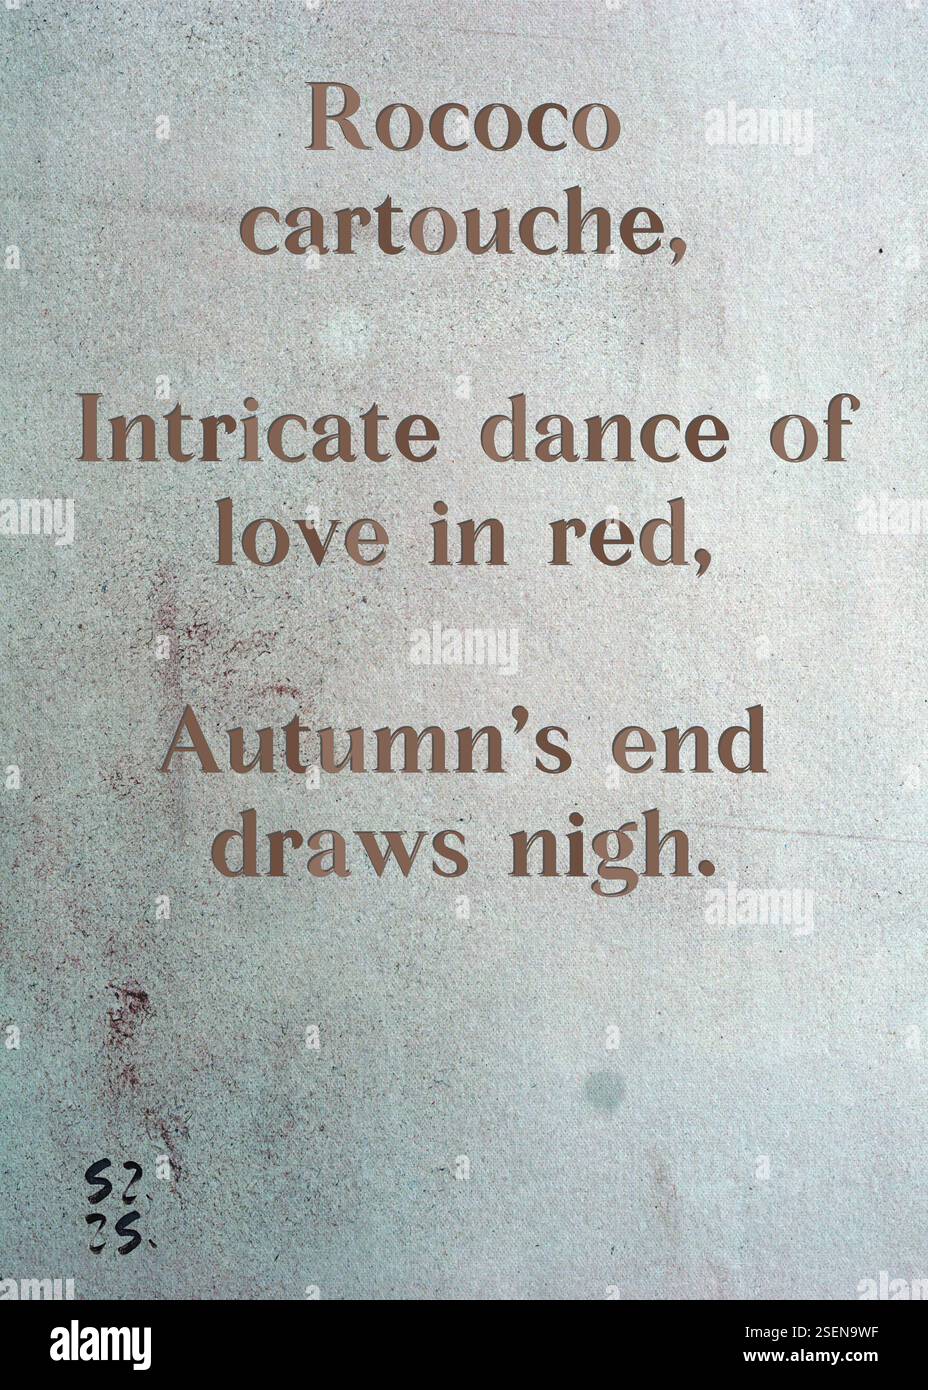 Rococo
cartouche,
Intricate dance of
love in red,
Autumn's end
draws nigh.
S2.
2S.
alamy
alamy
Image ID: 2SEN9WF
www.alamy.com